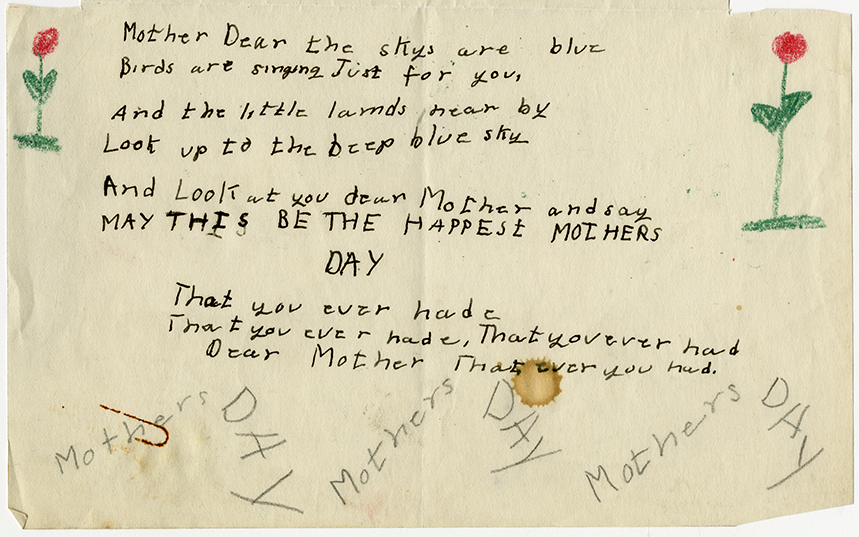 Mother Dear the skys are blue
Birds are singing Just for you,
And the little lamds near by
Look up to the Deep blue sky
And Look at you dear Mother and say
MAY THIS BE THE HAPPEST MOTHERS
DAY
That you ever hade
That you ever hade, That you ever had
Dear Mother That ever you had.
Mothers DAY Mothers DAY Mothers DAY